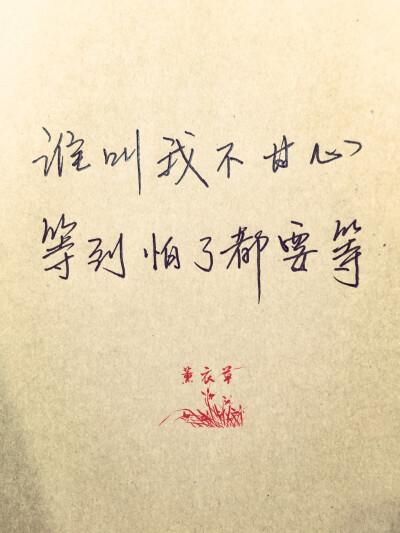 谁叫我不甘心
等到怕了都要等
薰衣草